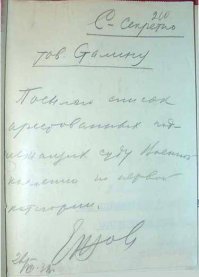 200
С. Секретно
тов. Сталину
Посылаю список
арестованных под-
лежащих суду Военной
коллегии по первой
категории.
Ежов
26/VII-38